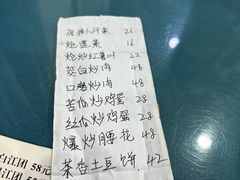 凉拌人汗菜 26
炝莲菜 16
炝炒红薯叶 22
茭白炒肉 48
口磨炒肉 48
苦瓜炒鸡蛋 28
丝瓜炒鸡蛋 28
爆炒腰花 48
茶香土豆饼 42
白江团 58元
江团 5